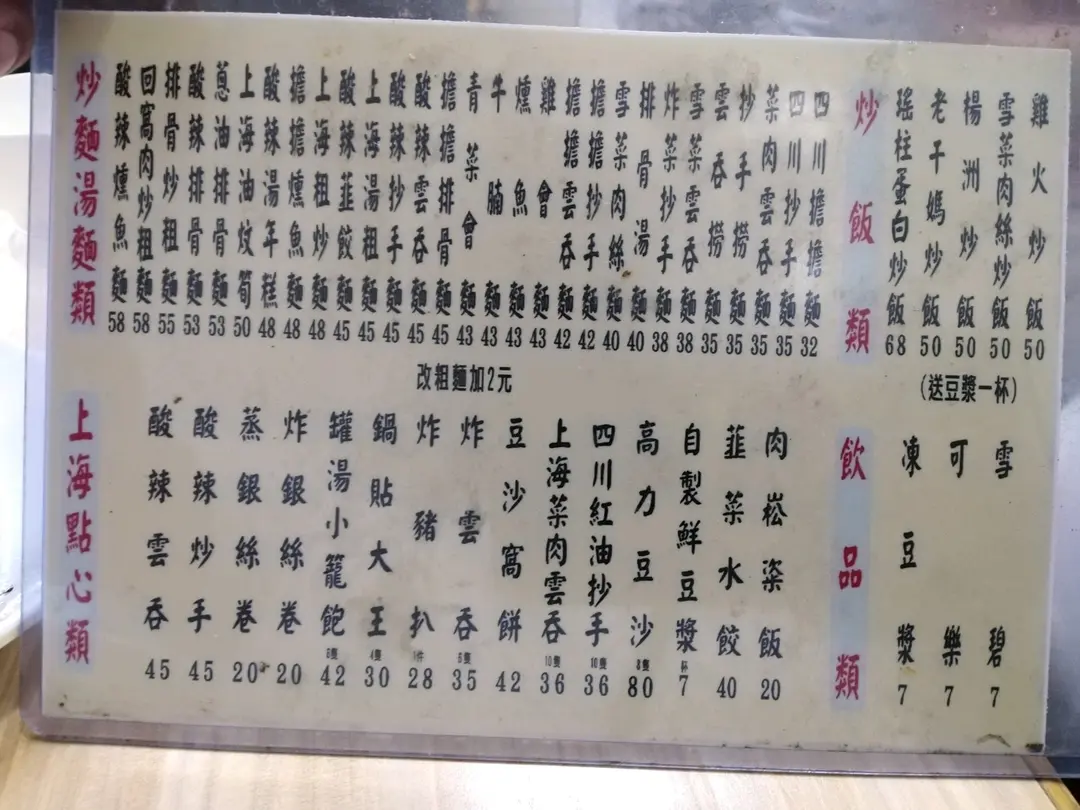 炒麵湯麵類
酸辣燻魚麵 58
回窩肉炒粗麵 58
排骨炒粗麵 55
酸辣排骨麵 53
蔥油排骨麵 53
上海油炆筍 50
酸辣湯年糕 48
擔擔燻魚麵 48
上海粗炒麵 48
酸辣韮餃麵 45
上海湯粗麵 45
酸辣抄手麵 45
酸辣雲吞麵 45
擔擔排骨麵 45
青菜會麵 43
牛腩麵 43
燻魚麵 43
雞會麵 43
擔擔雲吞麵 42
擔擔抄手麵 42
雪菜肉絲麵 40
排骨湯麵 40
炸菜抄手麵 38
雪菜雲吞麵 38
雲吞撈麵 35
抄手撈麵 35
菜肉雲吞麵 35
四川抄手麵 35
四川擔擔麵 32
改粗麵加2元
炒飯類
瑤柱蛋白炒飯 68
老干媽炒飯 50
楊洲炒飯 50
雪菜肉絲炒飯 50
雞火炒飯 50
(送豆漿一杯)
上海點心類
酸辣雲吞 45
酸辣炒手 45
蒸銀絲卷 20
炸銀絲卷 20
罐湯小籠飽 6隻 42
鍋貼大王 4隻 30
炸豬扒 1件 28
炸雲吞 6隻 35
豆沙窩餅 42
上海菜肉雲吞 10隻 36
四川紅油抄手 10隻 36
高力豆沙 8隻 80
自製鮮豆漿 杯 7
韮菜水餃 40
肉崧粢飯 20
飲品類
凍豆漿 7
可樂 7
雪碧 7